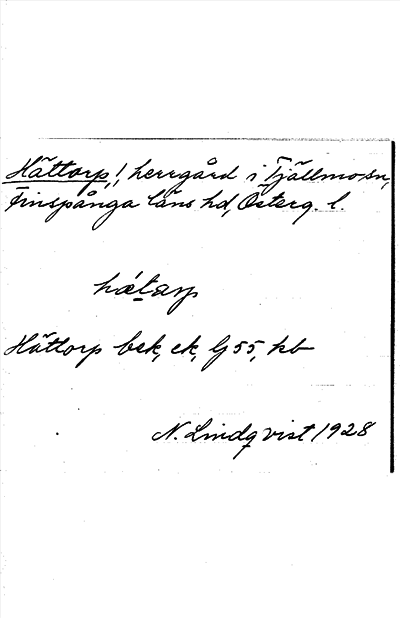 Hättorp!, herrgård i Tjällmo sn,
Finspånga läns hd, Österg. l.
hǽtarp
Hättorp bek, ek, Gj 55, kb
N. Lindqvist 1928